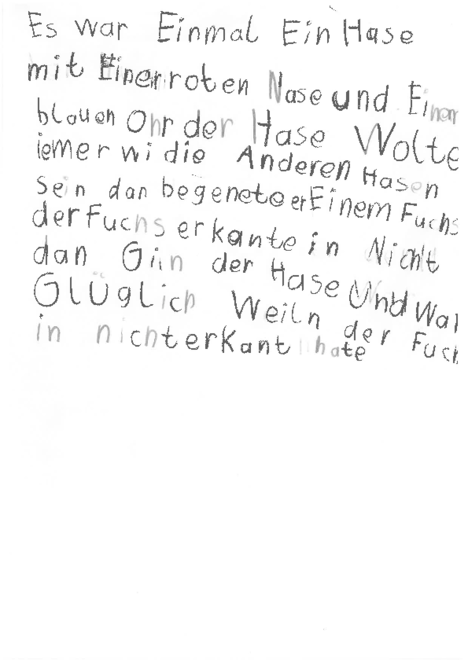 Es war Einmal Ein Hase
mit Einer roten Nase und Einem
blauen Ohr der Hase Wolte
iemer wi die Anderen Hasen
sein dan begenete er Einem Fuchs
der Fuchs erkante in Nicht
dan Gin der Hase Und War
Glüglich Weiln der Fuch
in nicht erkant hate